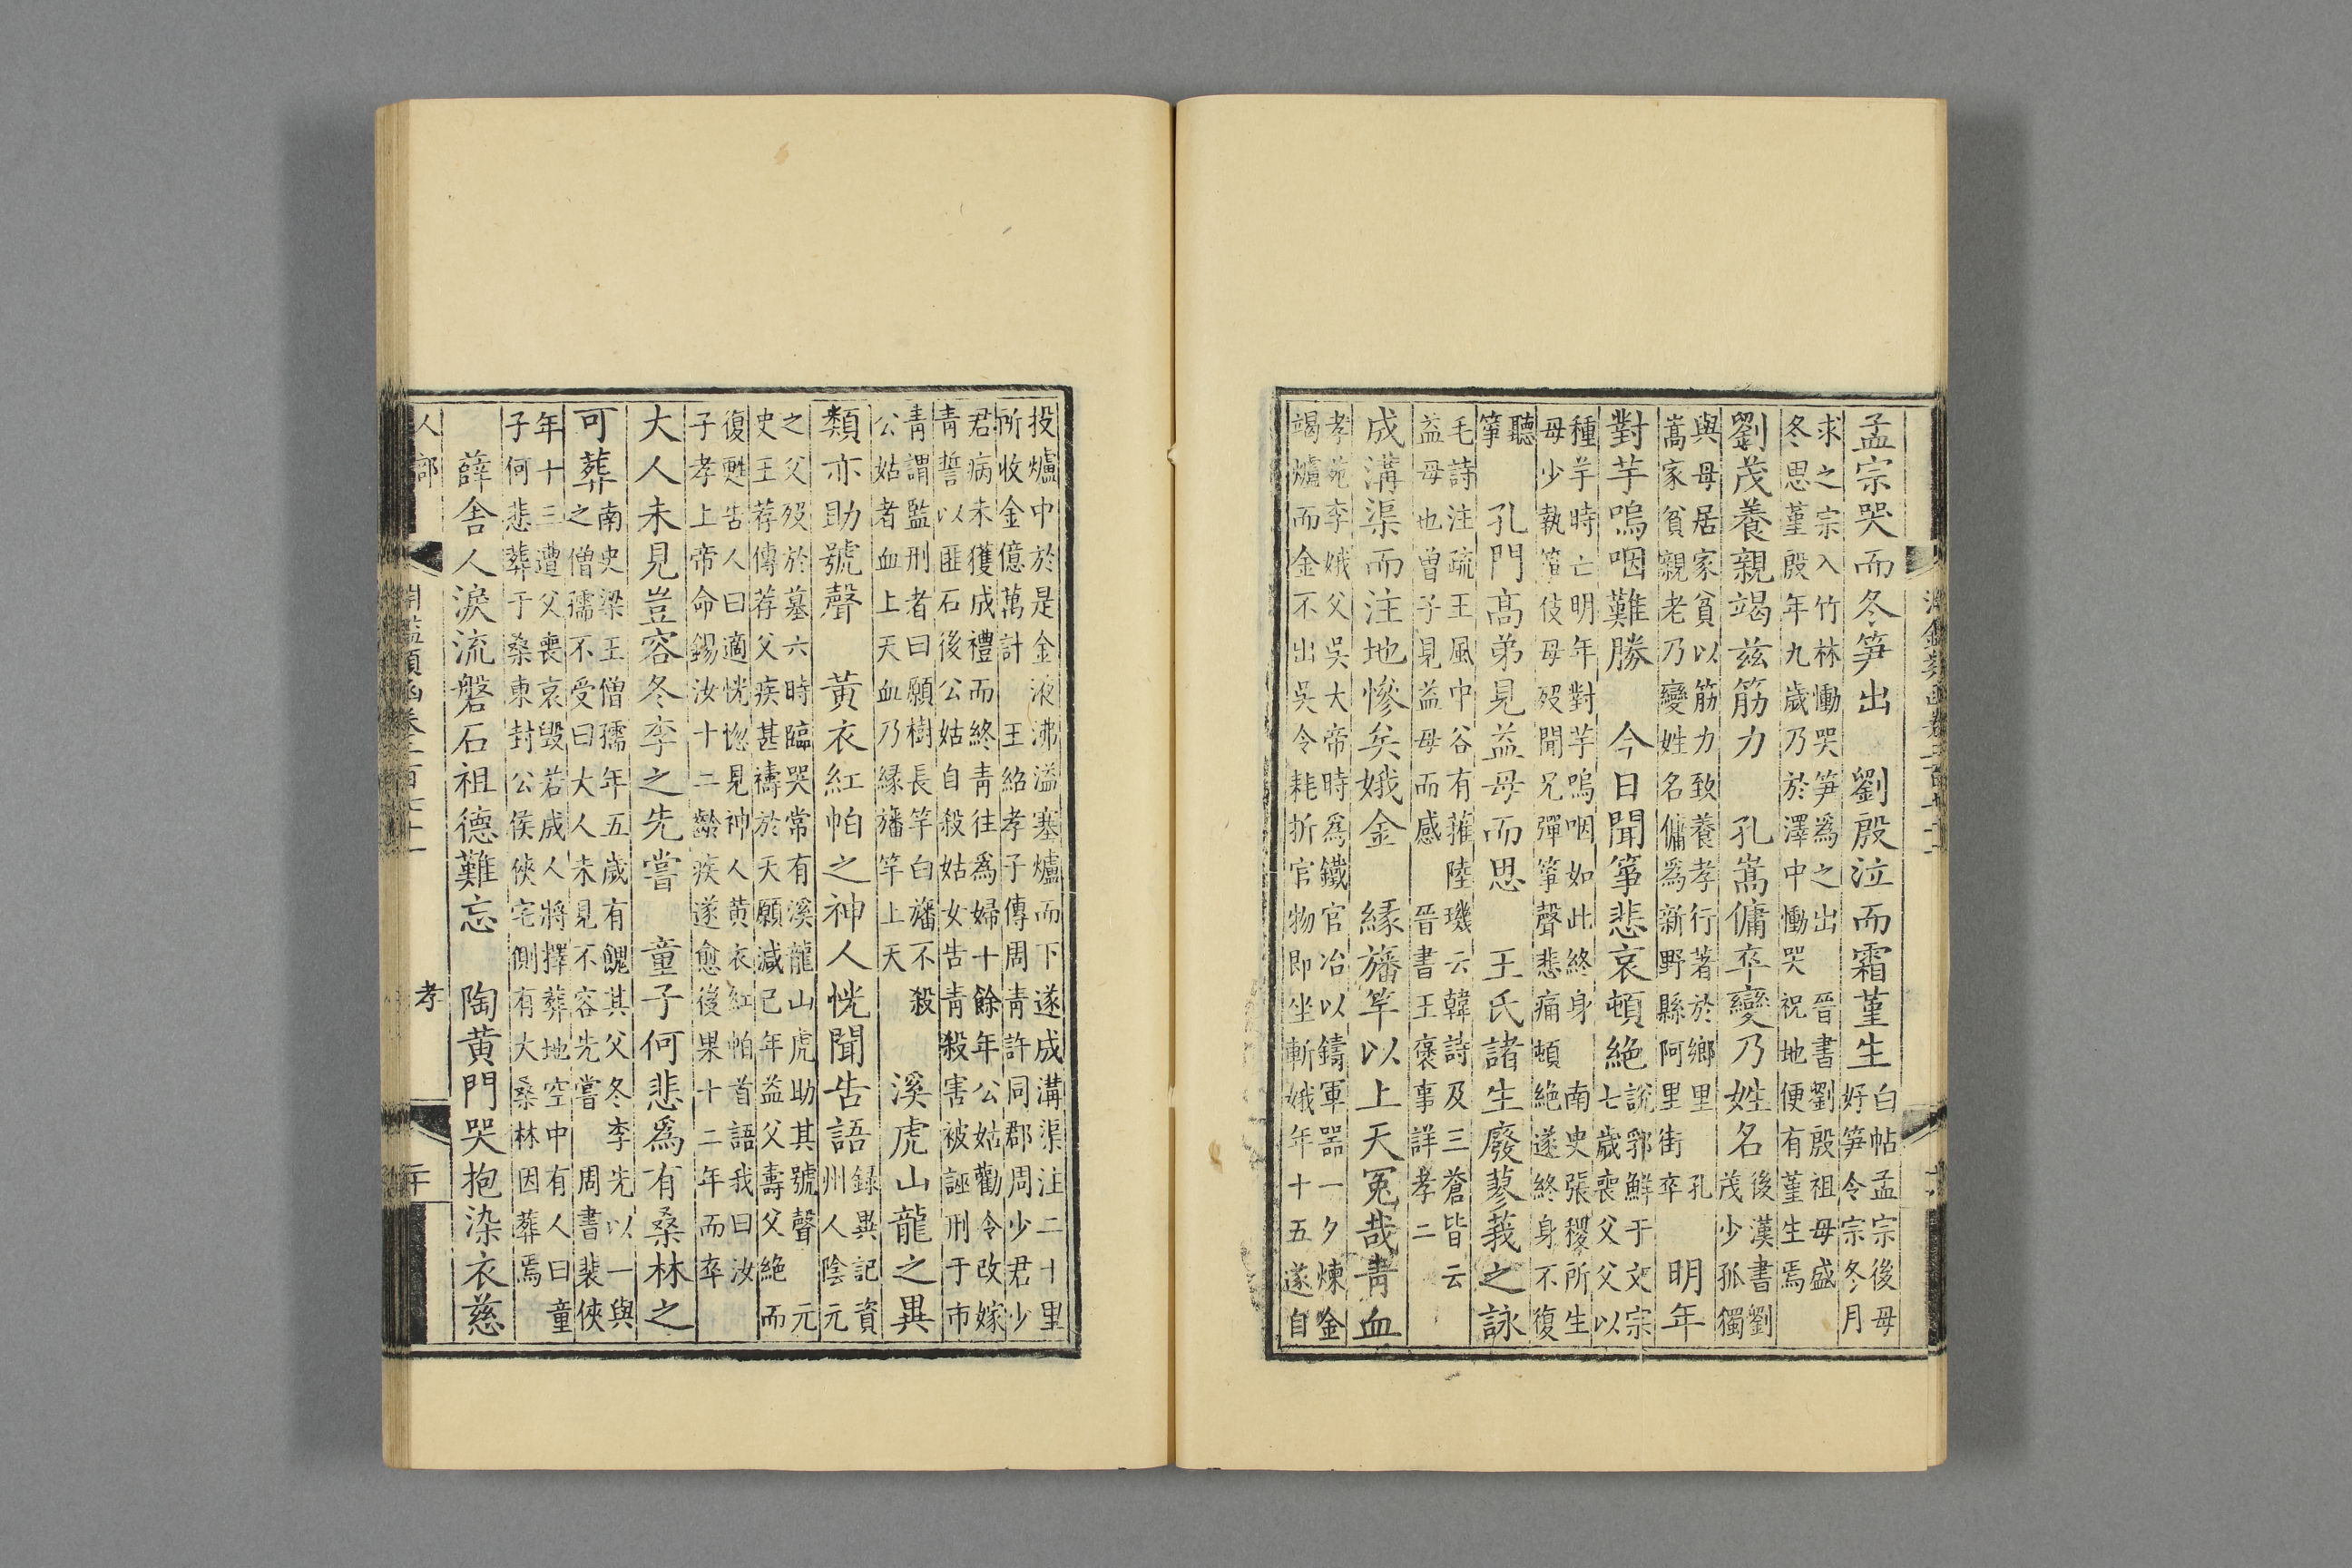 孟宗哭而冬笋出　劉殷泣而霜堇生
白帖孟宗後母
好笋令宗冬月
求之宗入竹林慟哭笋爲之出　晉書劉殷祖母盛
冬思堇殷年九歲乃於澤中慟哭祝地便有堇生焉
劉茂養親竭兹筋力　孔嵩傭卒變乃姓名
後漢書劉
茂少孤獨
與母居家貧以筋力致養孝行著於鄉里　孔
嵩家貧親老乃變姓名傭爲新野縣阿里街卒
明年
對芋嗚咽難勝　今日聞箏悲哀頓絶
說郛鮮于文宗
七歲喪父父以
種芋時亡明年對芋嗚咽如此終身　南史張稷所生
母少執箏伎母歿聞兄彈箏聲悲痛頓絶遂終身不復
聽
箏
孔門高弟見益母而思　王氏諸生廢蓼莪之詠
毛詩注疏王風中谷有蓷陸璣云韓詩及三蒼皆云
益母也曾子見益母而感　晉書王裒事詳孝二
成溝渠而注地慘矣娥金　緣旛竿以上天冤哉青血
孝苑李娥父吳大帝時爲鐵官冶以鑄軍器一夕煉金
竭爐而金不出吳令耗折官物即坐斬娥年十五遂自
投爐中於是金液沸溢塞爐而下遂成溝渠注二十里
所收金億萬計　王紹孝子傳周青許同郡周少君少
君病未獲成禮而終青往爲婦十餘年公姑勸令改嫁
青誓以匪石後公姑自殺姑女告青殺害被誣刑于市
青謂監刑者曰願樹長竿白旛不殺
公姑者血上天血乃緣旛竿上天
溪虎山龍之異
類亦助號聲　黃衣紅帕之神人恍聞告語
錄異記資
州人陰元
之父歿於墓六時臨哭常有溪龍山虎助其號聲　元
史王荐傳荐父疾甚禱於天願減已年益父壽父絶而
復甦告人曰適恍惚見神人黄衣紅帕首語我曰汝
子孝上帝命錫汝十二齡疾遂愈後果十二年而卒
大人未見豈容冬李之先嘗　童子何悲爲有桑林之
可葬
南史梁王僧孺年五歲有餽其父冬李先以一與
之僧孺不受曰大人未見不容先嘗　周書裴俠
年十三遭父喪哀毀若成人將擇葬地空中有人曰童
子何悲葬于桑東封公侯俠宅側有大桑林因葬焉
薛舍人淚流磐石祖德難忘　陶黄門哭抱染衣慈
人部
孝